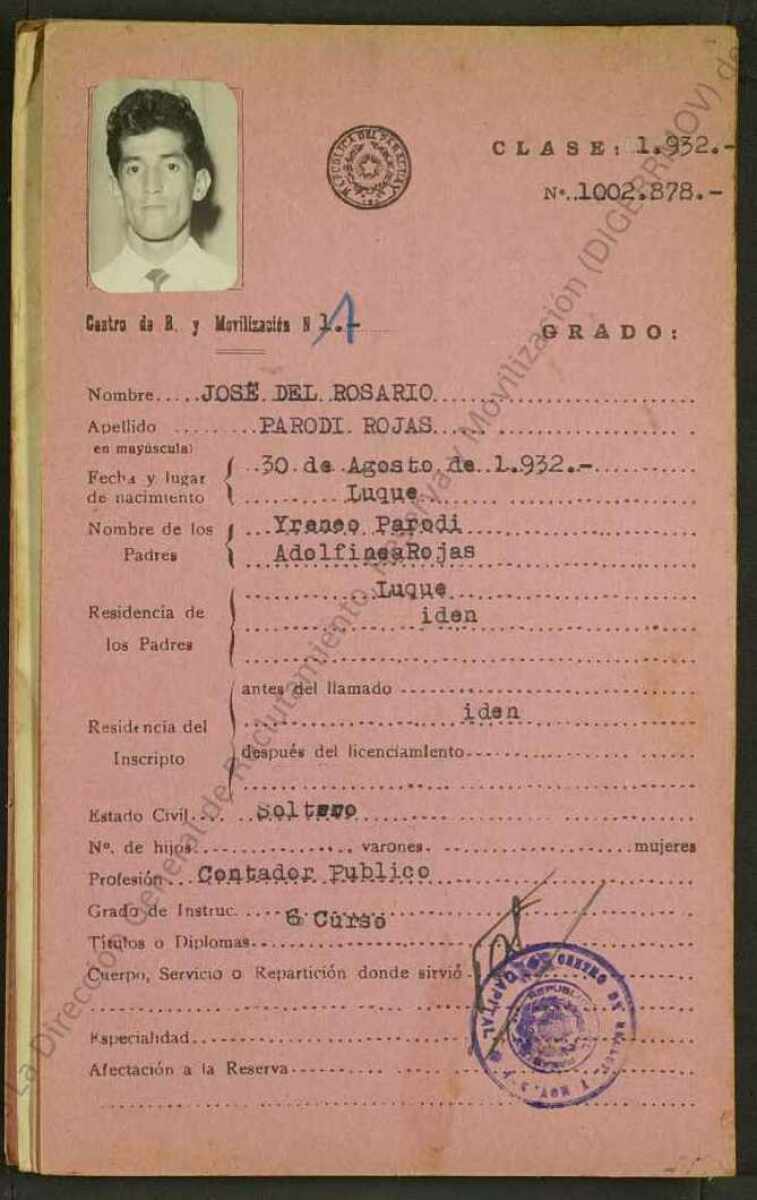 REPUBLICA DEL PARAGUAY
CLASE: 1.932.-
Nº. 1002.878.-
Centro de R. y Movilización N 1.-
1
GRADO:
Nombre..... JOSE DEL ROSARIO
Apellido ........ PARODI ROJAS
en mayúscula)
Fecha y lugar de nacimiento { 30 de Agosto de 1.932.-
Luque
Nombre de los Padres { Yraneo Parodi
AdolfineaRojas
Residencia de los Padres { Luque
iden
Residencia del Inscripto { antes del llamado
iden
después del licenciamiento
Estado Civil.... Soltero
Nº. de hijos: varones. mujeres
Profesión... Contador Publico
Grado de Instruc. 6 Curso
Títulos o Diplomas.
Cuerpo, Servicio o Repartición donde sirvió
Especialidad
Afectación a la Reserva
CENTRO DE RECLUT. Y MOV.
CAPITAL
REPUBLICA
La Dirección General de Reclutamiento, Reserva y Movilización (DIGERRMOV) de